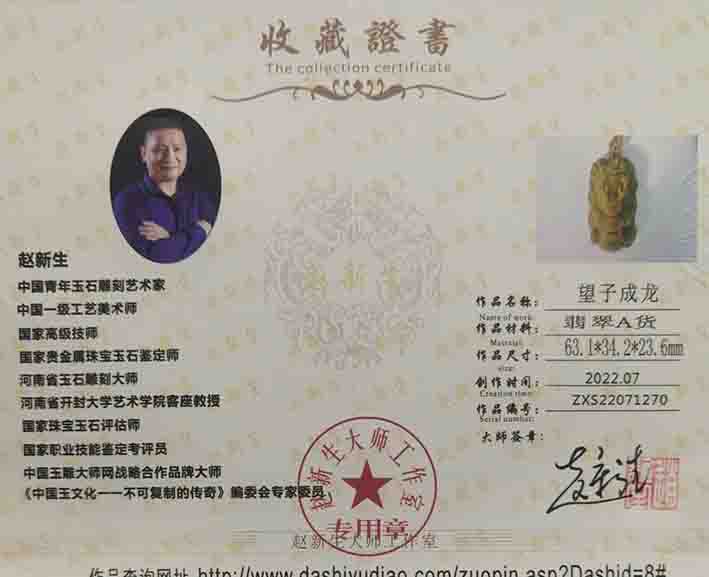 收藏證書
The collection certificate
赵新生
中国青年玉石雕刻艺术家
中国一级工艺美术师
国家高级技师
国家贵金属珠宝玉石鉴定师
河南省玉石雕刻大师
河南省开封大学艺术学院客座教授
国家珠宝玉石评估师
国家职业技能鉴定考评员
中国玉雕大师网战略合作品牌大师
《中国玉文化一一不可复制的传奇》编委会专家委员
作品名称： 望子成龙
Name of work:
作品材料： 翡翠A货
Material:
作品尺寸： 63.1*34.2*23.6mm
size:
创作时间： 2022.07
Creation time:
作品编号： ZXS22071270
Serial number:
大师签章：
赵新生
赵新生大师工作室
专用章
赵新生大师工作室
作品查询网址 http://www.dashiyudiao.com/zuopin.asp?Dashid=8#